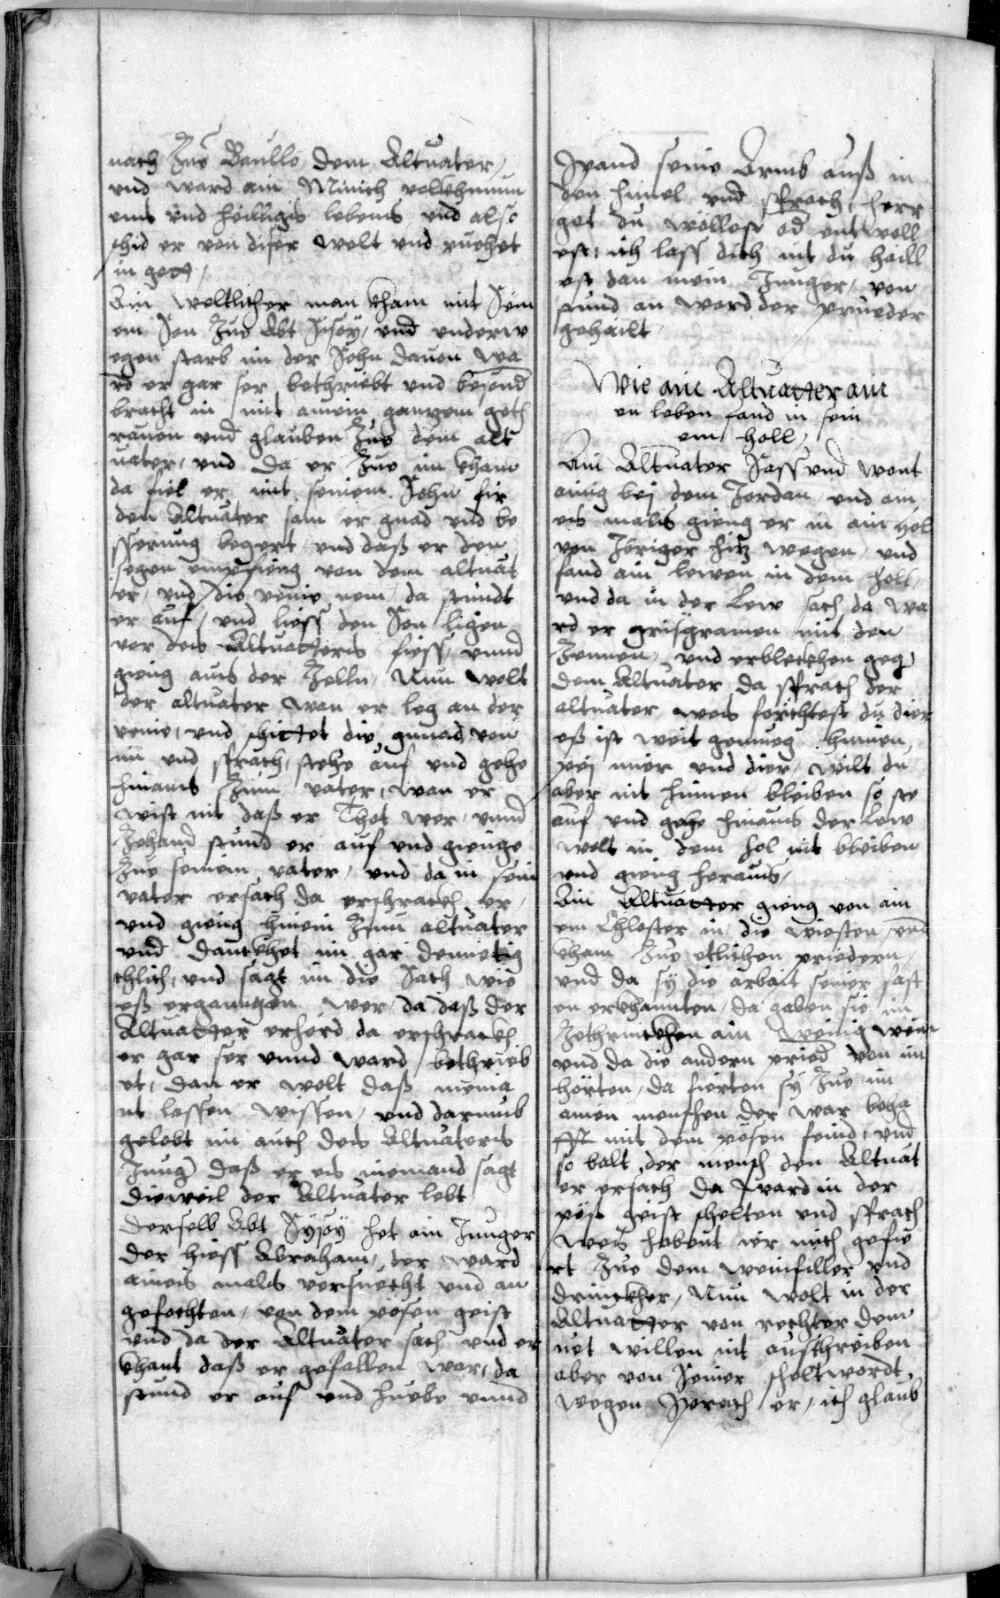 nach Zue Baullo dem Altuater,
vnd ward ain Münich vollekhumn
ens vnd heilligis lebens vnd also
schid er von diser welt vnd ruehet
in gott,
Ain weltlicher man kham mit seim
em son Zue Abt Sisoÿ, vnd vnderw
egen starb im der Sohn dauon wa
rd er gar ser bethriebt vnd
bracht in mit ainem ganzem geth
rauen vnd glauben Zue dem alt
uater, vnd da er Zue im kham
da fiel er mit seinem Sohn fir
den Altuater sam er gnad vnd be
sserung begert, vnd daß er den
segen empfieng von dem altuat
er, vnd die venie nem, da stundt
er auf, vnd liess den Son ligen
vor des Altuatters fiess, vnnd
gieng aus der Zelln, Nun wolt
der altuater wan er leg an der
venie, vnd schittet die gnnad von
im vnd sprach, stehe auf vnd gehe
hinaus Zum vater, wan er
wist nit daß er Thot wer, vnnd
Zehand stund er auf vnd gienge
Zue seinem vater, vnd da in sein
vater ersach da erschrackh er,
vnd gieng hinein Zum altuater
vnd danckhet im gar demietig
chlich, vnd sagt im die sach wie
eß ergangen wer, da daß der
Altuatter erherd da erschrackh
er gar ser vnnd ward bethrieb
et, dan er wolt daß niema
nt lassen wissen, vnd darumb
gelobt im auch des Altuaters
Jung daß er es niemand sagt
dieweil der Altuater lebt
Derselb Abt Sÿsoÿ het ain Junger
der hiess Abraham, der ward
aines mals versuecht vnd an
gefochten, von dem posen geist
vnd da der Altuater sach vnd er
khant daß er gefallen war, da
stund er auf vnd huebe vnnd
spand seine Armb auß in
den himel vnd sprach, herr
got du wöllest od entwöll
est, ich lass dich nit du haill
est dan mein Junger, von
stund an ward der prueder
gehailt,
Wie ain Altuatter ain
en leben fand in sein
em holl,
Ain Altuater sass vnd wont
ainig bej dem Jordan, vnd ain
es mals gieng er in ain höl
von hitz wegen, vnd
fand ain lewen in dem holl,
vnd da in der Lew sach da wa
rd er grißgramen mit den
Zennen, vnd erbleckhen geg
dem Altuater da sprach der
altuater wes ferchtest du dier
eß ist weit genueg hinnen,
pej mier vnd dier, wilt du
aber nit hinnen bleiben so ste
auf vnd gehe hinaus der Lew
wolt in dem hol nit bleiben
vnd gieng heraus,
Ain Altuatter gieng von ain
em Chloster in die wiesten, vnd
kham Zue etlichen priedern,
vnd da sÿ die arbait seiner fast
en erkhannten, da gaben sie im
Zethrinckhen ain wenig wein
vnd da die andern pried von im
hörten, da fierten sÿ Zue im
ainen menschen der war beha
fft mit dem pösen feind, vnd
so balt der mensch den Altuat
er ersach da ward in der
pös geist schelten vnd sprach
Wes habent ier mich gefie
rt Zue dem weinfiller vnd
drinckher, Nun wolt in der
Altuatter von rechter dem
uet willen nit austhreiben
aber von seiner scheltwordt
wegen sprach er, ich glaub